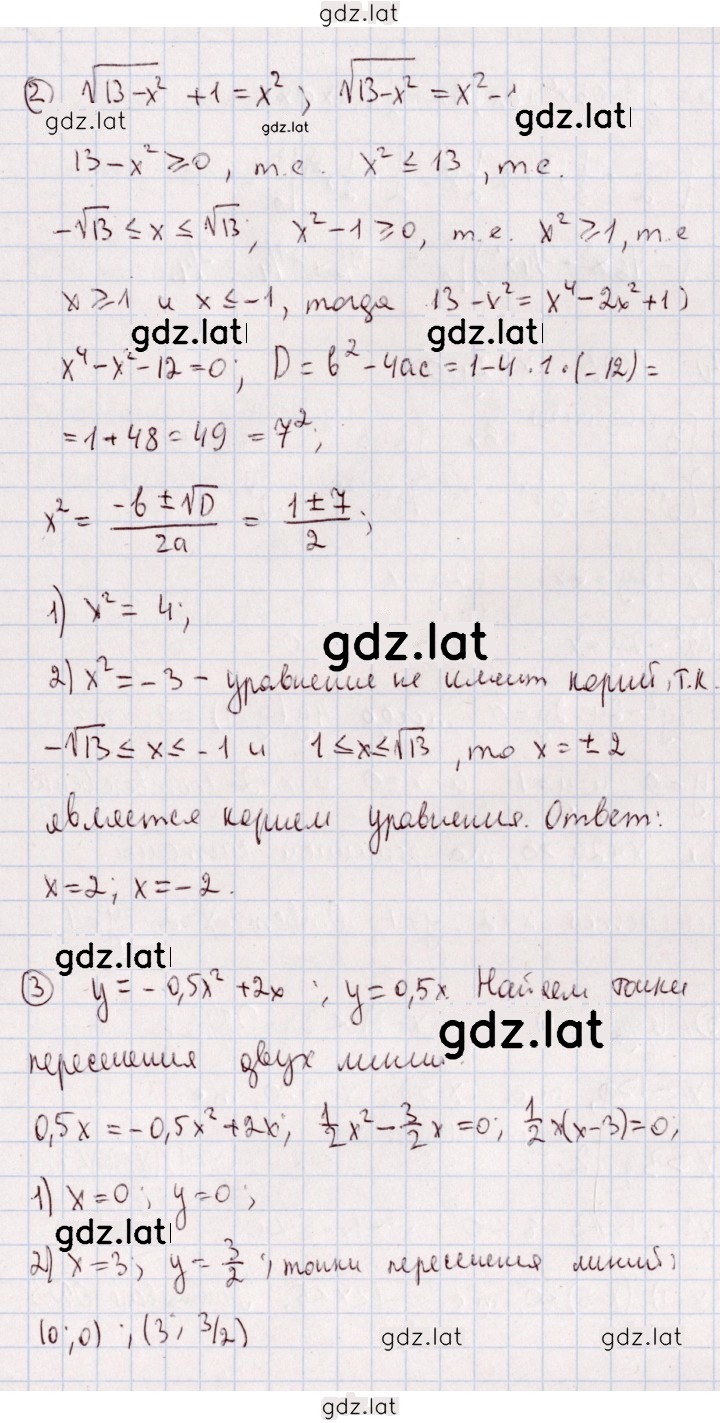 gdz.lat
② √13-x² + 1 = x² ; √13-x² = x² - 1
gdz.lat gdz.lat gdz.lat
13 - x² ⩾ 0, т.е. x² ≤ 13, т.е.
-√13 ≤ x ≤ √13; x² - 1 ⩾ 0, т.е. x² ⩾ 1, т.е
x ⩾ 1 и x ≤ -1, тогда 13 - x² = x⁴ - 2x² + 1;
gdz.lat gdz.lat
x⁴ - x² - 12 = 0; D = b² - 4ac = 1 - 4 · 1 · (-12) =
= 1 + 48 = 49 = 7²;
x² = (-b ± √D)/2a = (1 ± 7)/2;
1) x² = 4;
gdz.lat
2) x² = -3 - уравнение не имеет корней, т.к.
-√13 ≤ x ≤ -1 и 1 ≤ x ≤ √13, то x = ± 2
является корнем уравнения. Ответ:
x = 2; x = -2.
gdz.lat
③ y = -0,5x² + 2x ; y = 0,5x. Найдем точки
gdz.lat
пересечения двух линий.
0,5x = -0,5x² + 2x; 1/2 x² - 3/2 x = 0; 1/2 x(x-3) = 0;
1) x = 0; y = 0;
gdz.lat
2) x = 3; y = 3/2; точки пересечения линий:
(0;0) ; (3; 3/2)
gdz.lat gdz.lat
gdz.lat